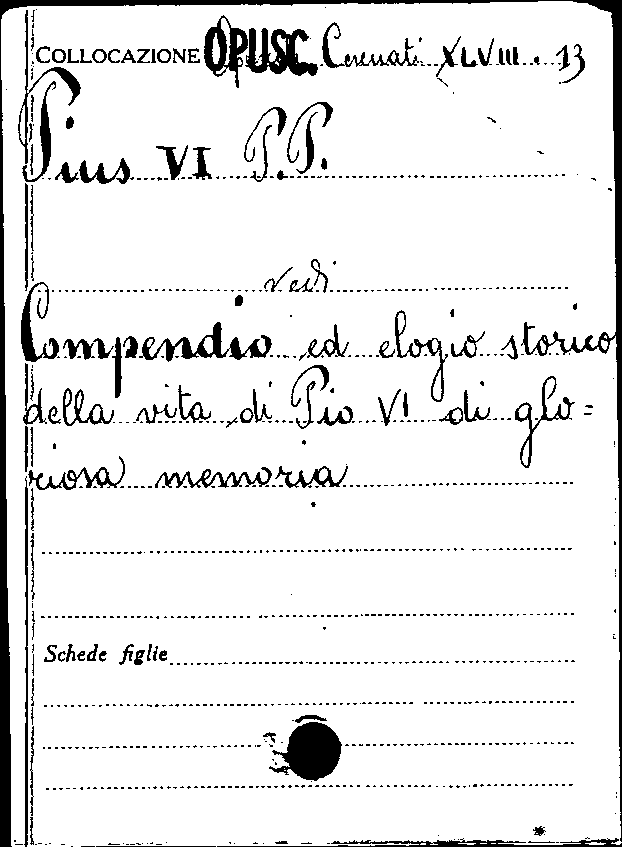 COLLOCAZIONE OPUSC. Cesenati XLVIII. 13
Pius VI P.P.
vedi
Compendio ed elogio storico
della vita di Pio VI di glo=
riosa memoria
Schede figlie